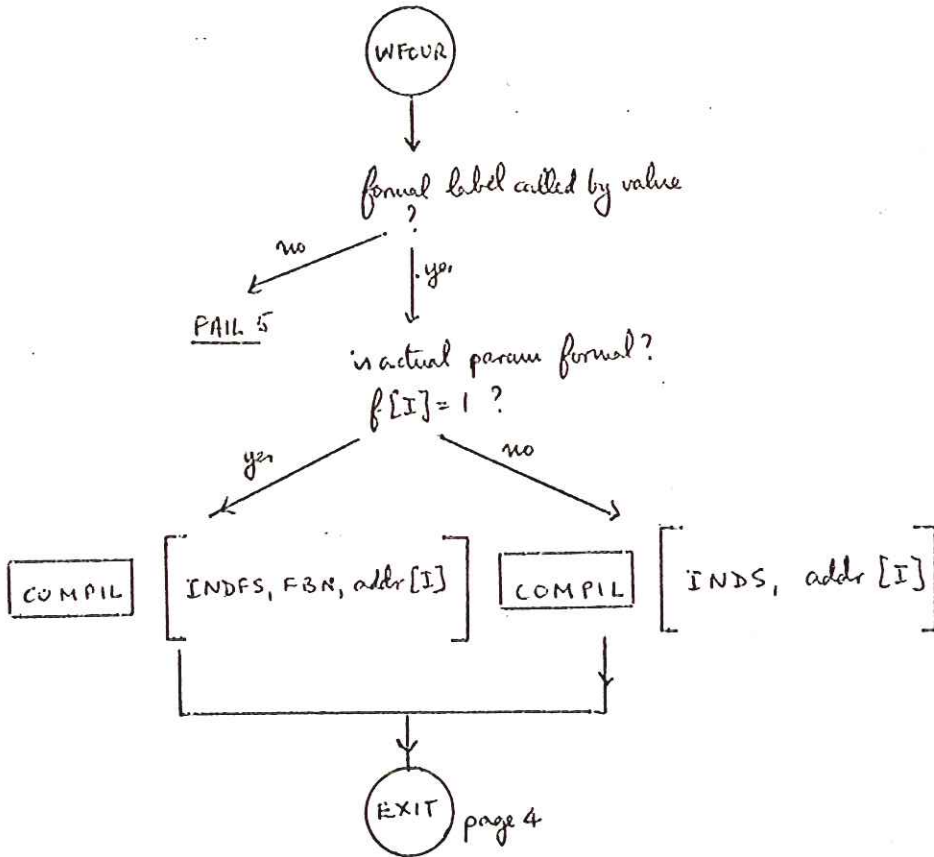 WFOUR
formal label called by value
?
no
yes
FAIL 5
is actual param formal?
f[I] = 1 ?
yes
no
COMPIL [INDFS, FBN, addr [I]]
COMPIL [INDS, addr [I]]
EXIT
page 4